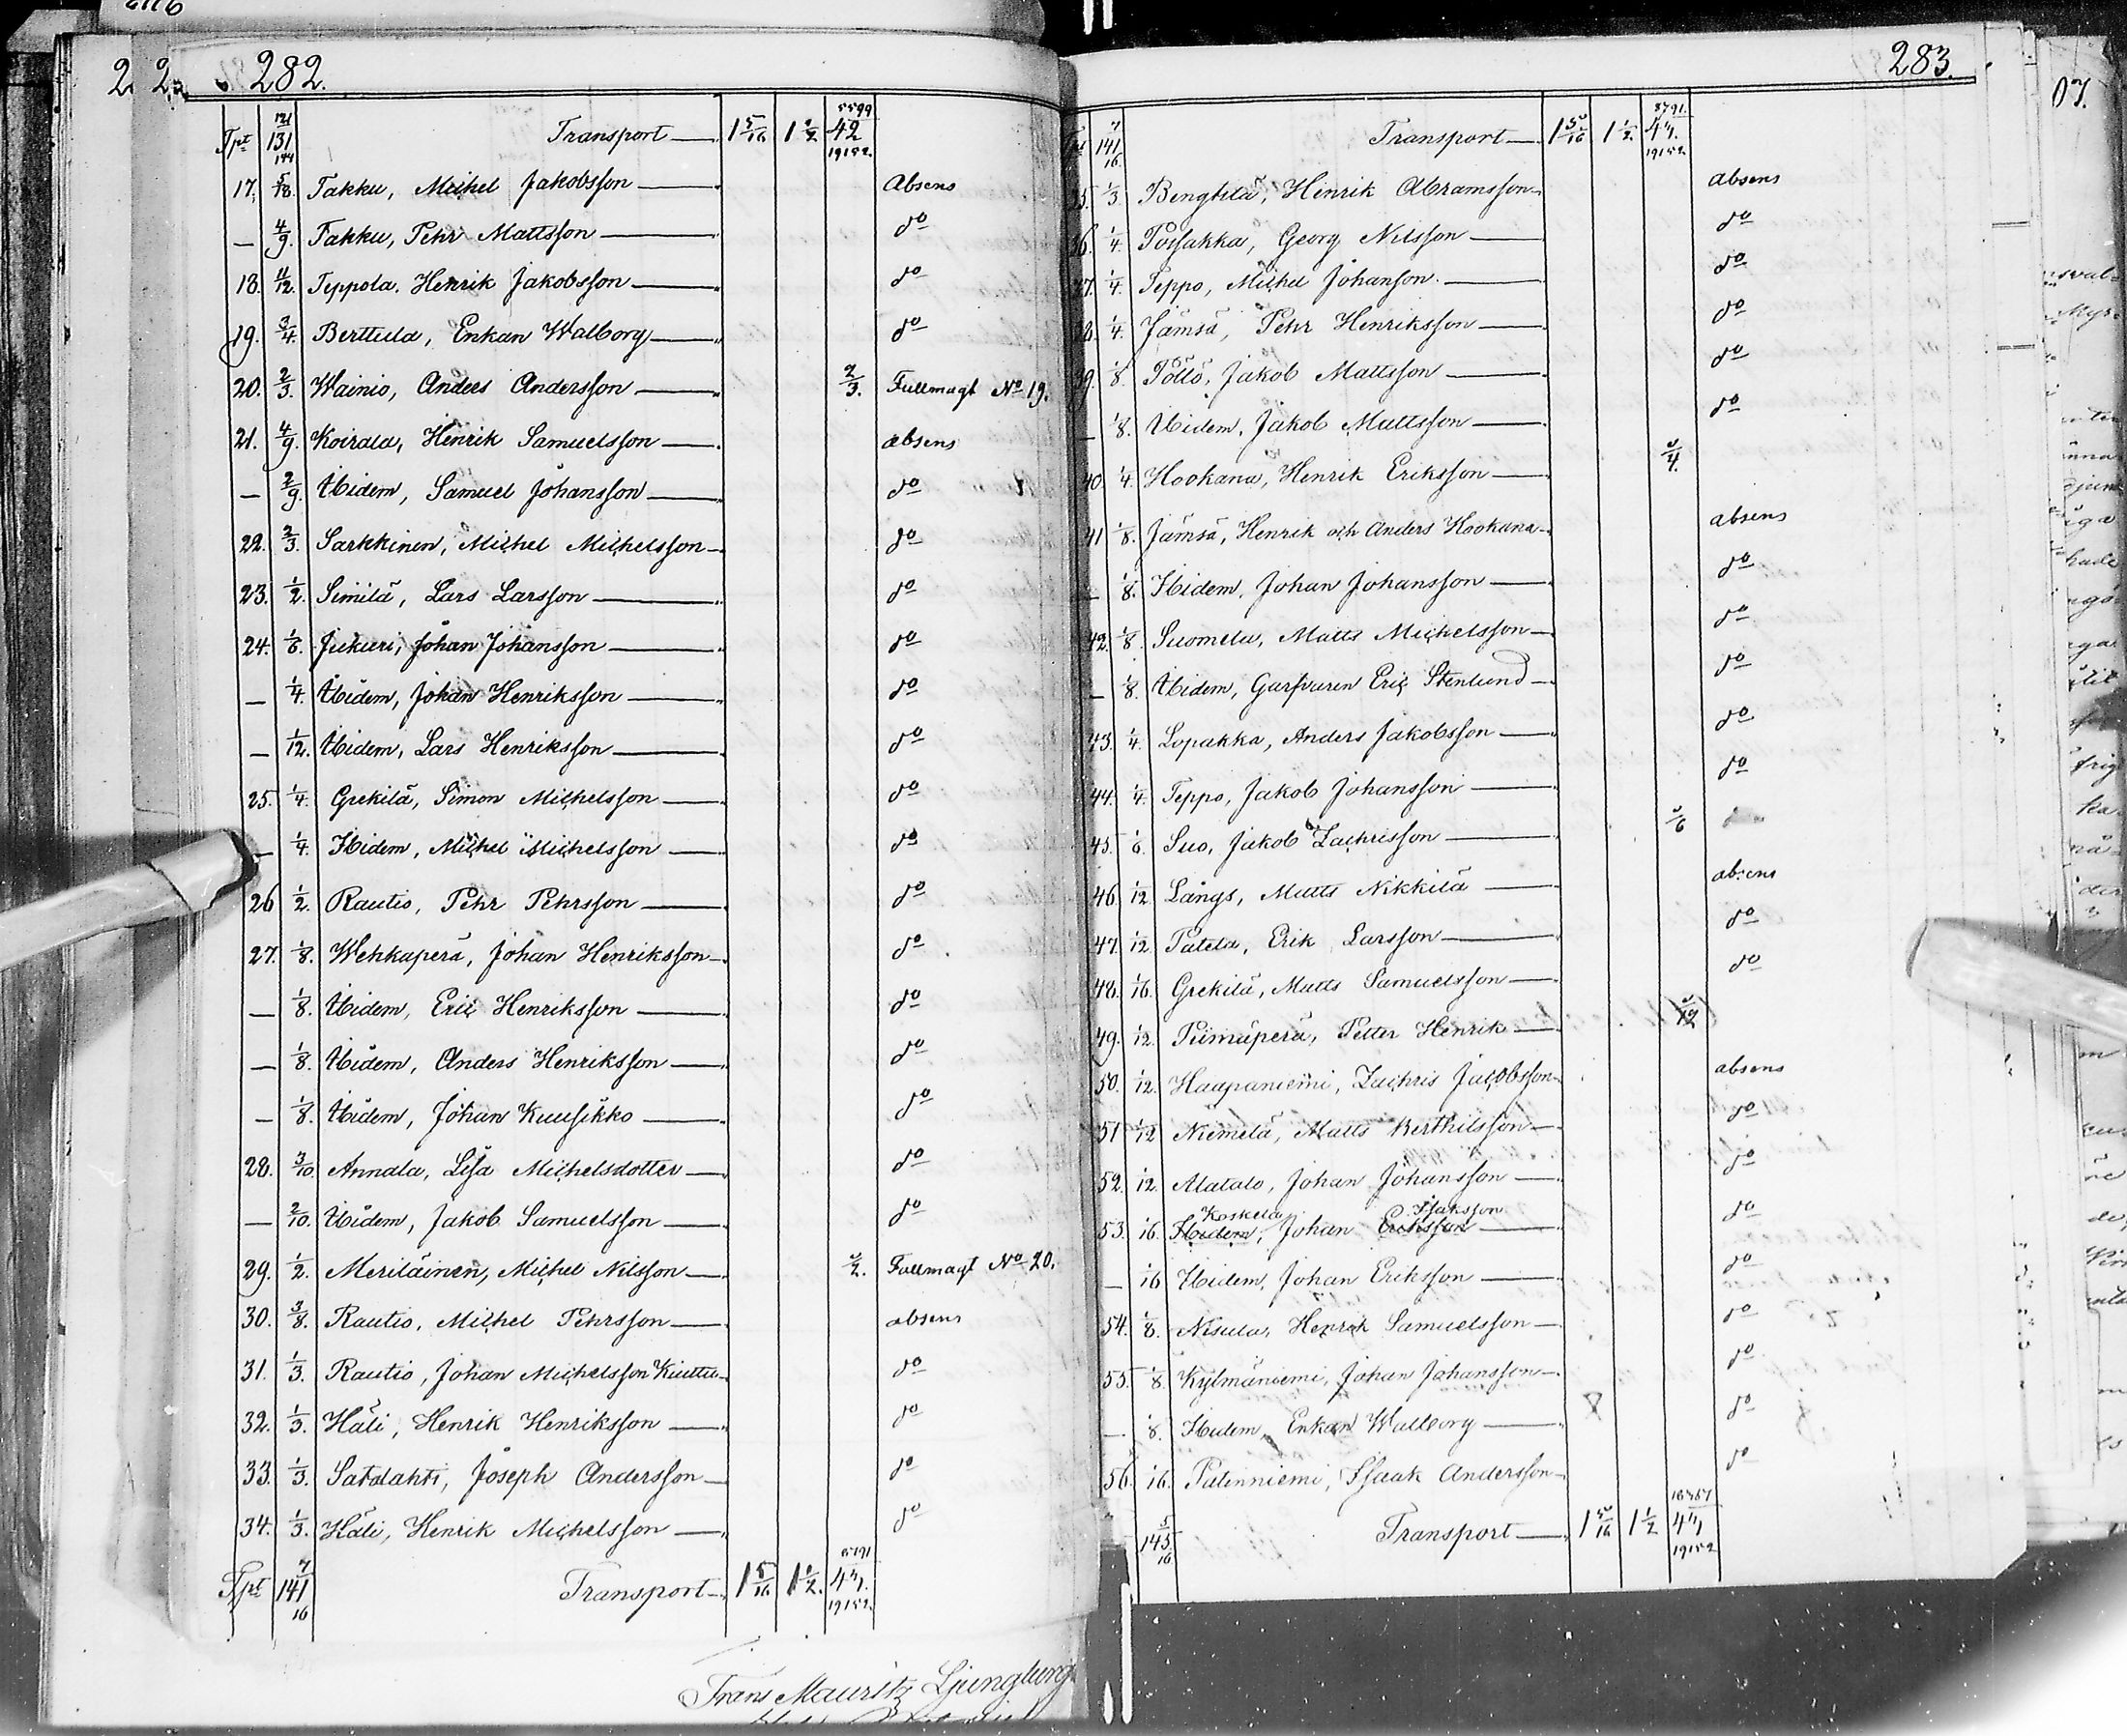 282.
Tpt 131 121/144 Transport 1 5/16 1 1/2 42 5599/19152
17. 5/18. Takku, Michel Jakobsson Absens
— 4/9. Takku, Pehr Mattsson do
18. 11/12. Teppola. Henrik Jakobsson do
19. 3/4. Berttula, Enkan Walborg do
20. 2/3. Wainio, Anders Andersson 2/3. Fullmagt No 19.
21. 4/9. Koirala, Henrik Samuelsson absens
— 2/9. Ibidem, Samuel Johansson do
22. 2/3. Sarkkinen, Michel Michelsson do
23. 1/2. Similä, Lars Larsson do
24. 1/6. Jukuri, Johan Johansson do
— 1/4. Ibidem, Johan Henriksson do
— 1/12. Ibidem, Lars Henriksson do
25. 1/4. Grekilä, Simon Michelsson do
— 1/4. Ibidem, Michel Michelsson do
26 1/2. Rautio, Pehr Pehrsson do
27. 1/8. Wehkaperä, Johan Henriksson do
— 1/8. Ibidem, Eric Henriksson do
— 1/8. Ibidem, Anders Henriksson do
— 1/8. Ibidem, Johan Kuusikko do
28. 3/10. Annala, Lisa Michelsdotter do
— 2/10. Ibidem, Jakob Samuelsson do
29. 1/2. Meriläinen, Michel Nilsson 1/2. Fullmagt No 20.
30. 3/8. Rautio, Michel Pehrsson absens
31. 1/3. Rautio, Johan Michelsson Kiuttu do
32. 1/3. Häli, Henrik Henriksson do
33. 1/3. Satalahti, Joseph Andersson do
34. 1/3. Häli, Henrik Michelsson do
Tpt 141 7/16 Transport 1 5/16 1 1/2. 43. 8791/19152.
Frans Mauritz Ljungberg
283.
141 7/16 Transport 1 5/16 1 1/2. 43. 8791./19152.
35. 1/3 Bengtilä, Henrik Abramsson absens
36. 1/4. Poisakka, Georg Nilsson do
37. 1/4. Teppo, Michel Johanson. do
38. 1/4. Jämsä, Pehr Henriksson do
39. 1/8. Pöllö, Jakob Mattsson do
— 1/8. Ibidem, Jakob Mattsson do
40. 1/4. Hookana, Henrik Eriksson 1/4.
41 1/8. Jämsä, Henrik och Anders Hookana absens
— 1/8. Ibidem, Johan Johansson do
42. 1/8. Suomela, Matts Michelsson do
— 1/8. Ibidem, Garfvaren Eric Stenlund do
43. 1/4. Lopakka, Anders Jakobsson do
44. 1/4. Teppo, Jakob Johansson do
45. 1/6. Suo, Jakob Zachrisson 1/6
46. 1/12 Långs, Matts Nikkilä absens
47. 1/12 Patela, Erik Larsson do
48. 1/16. Grekilä, Matts Samuelsson do
49. 1/12. Piimäperä, Petter Henrik 1/12
50. 1/12. Haapaniemi, Zachris Jacobsson absens
51 1/12 Niemelä, Matts Berthilsson do
52. 1/12. Alatalo, Johan Johansson do
Koskela Isaksson
53. 1/16. Ibidem, Johan Eriksson do
— 1/16 Ibidem, Johan Eriksson do
54. 1/8. Nisula, Henrik Samuelsson do
55. 1/8. Kylmäniemi, Johan Johansson do
— 1/8. Ibidem, Enkan Walborg do
56. 1/16. Patenniemi, Isaak Andersson do
145 5/16 Transport 1 5/16 1 1/2 /19152
07.